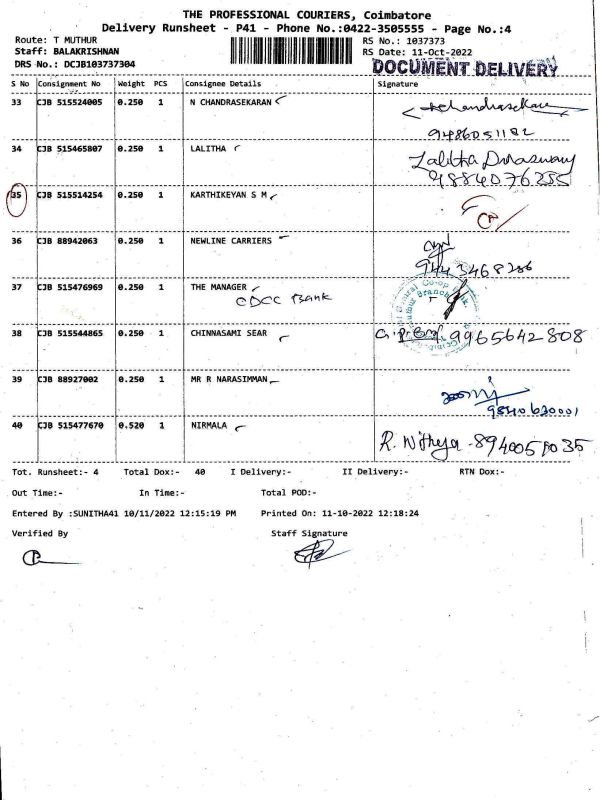 THE PROFESSIONAL COURIERS, Coimbatore
Delivery Runsheet - P41 - Phone No.:0422-3505555 - Page No.:4
Route: T MUTHUR RS No.: 1037373
Staff: BALAKRISHNAN RS Date: 11-Oct-2022
DRS No.: DCJB103737304 DOCUMENT DELIVERY
S No Consignment No Weight PCS Consignee Details Signature
33 CJB 515524005 0.250 1 N CHANDRASEKARAN
9486051182
34 CJB 515465807 0.250 1 LALITHA Lalitha
9884076255
35 CJB 515514254 0.250 1 KARTHIKEYAN S M
36 CJB 88942063 0.250 1 NEWLINE CARRIERS
9443468286
37 CJB 515476969 0.250 1 THE MANAGER
CDCC Bank
38 CJB 515544865 0.250 1 CHINNASAMI SEAR 9965642808
39 CJB 88927002 0.250 1 MR R NARASIMMAN
9840620001
40 CJB 515477670 0.520 1 NIRMALA R. Nithya - 8940050035
Tot. Runsheet:- 4 Total Dox:- 40 I Delivery:- II Delivery:- RTN Dox:-
Out Time:- In Time:- Total POD:-
Entered By :SUNITHA41 10/11/2022 12:15:19 PM Printed On: 11-10-2022 12:18:24
Verified By Staff Signature